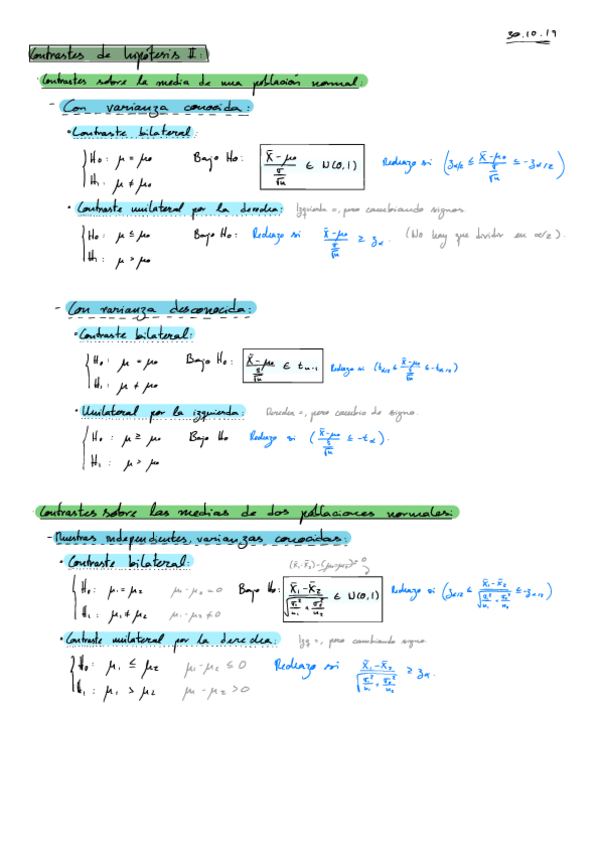 30.10.19
Contrastes de hipótesis II:
Contrastes sobre la media de una población normal:
- Con varianza conocida:
• Contraste bilateral:
{ H₀: μ = μ₀ Bajo H₀: (X̄ - μ₀)/(σ/√n) ∈ N(0,1) Rechazo si (z_α/2 ≤ (X̄ - μ₀)/(σ/√n) ≤ -z_α/2)
H₁: μ ≠ μ₀
• Contraste unilateral por la derecha: Izquierda =, pero cambiando signos.
{ H₀: μ ≤ μ₀ Bajo H₀: Rechazo si (X̄ - μ₀)/(σ/√n) ≥ z_α. (No hay que dividir en α/2).
H₁: μ > μ₀
- Con varianza desconocida:
• Contraste bilateral:
{ H₀: μ = μ₀ Bajo H₀: (X̄ - μ₀)/(ŝ/√n) ∈ t_n-1 Rechazo si (t_α/2 ≤ (X̄ - μ₀)/(ŝ/√n) ≤ -t_α/2)
H₁: μ ≠ μ₀
• Unilateral por la izquierda: Derecha =, pero cambio de signo.
{ H₀: μ ≥ μ₀ Bajo H₀ Rechazo si ((X̄ - μ₀)/(ŝ/√n) ≤ -t_α).
H₁: μ > μ₀
Contrastes sobre las medias de dos poblaciones normales:
- Muestras independientes, varianzas conocidas:
• Contraste bilateral: (X̄₁-X̄₂)-(μ₁-μ₂)⁰
{ H₀: μ₁ = μ₂ μ₁-μ₂ = 0 Bajo H₀: (X̄₁-X̄₂)/√(σ₁²/n₁ + σ₂²/n₂) ∈ N(0,1) Rechazo si (z_α/2 ≤ (X̄₁-X̄₂)/√(σ₁²/n₁ + σ₂²/n₂) ≤ -z_α/2)
H₁: μ₁ ≠ μ₂ μ₁-μ₂ ≠ 0
• Contraste unilateral por la derecha: Izq =, pero cambiando signo.
{ H₀: μ₁ ≤ μ₂ μ₁-μ₂ ≤ 0 Rechazo si (X̄₁-X̄₂)/√(σ₁²/n₁ + σ₂²/n₂) ≥ z_α.
H₁: μ₁ > μ₂ μ₁-μ₂ > 0